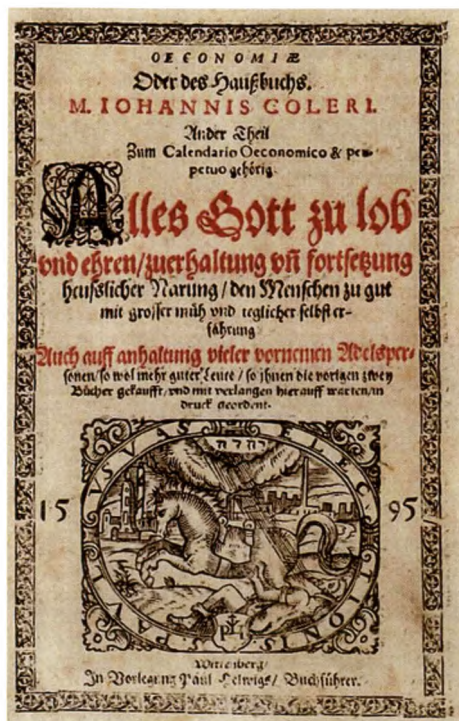 OECONOMIÆ
Oder des Haußbuchs.
M. IOHANNIS COLERI.
Ander Theil
Zum Calendario Oeconomico & per-
petuo gehörig.
Alles Gott zu lob
vnd ehren/zuerhaltung vñ fortsetzung
heuslicher Narung/den Menschen zu gut
mit grosser müh vnd teglicher selbst er-
fahrung
Auch auff anhaltung vieler vornemen Adelsper-
sonen/so wol mehr guter Leute/so jhnen die vorigen zwey
Bücher gekaufft/vnd mit verlangen hierauff warten/in
druck geordent.
PAVLVS VAS ELECTIONIS
15 95
Wittenberg/
In Vorlegung Paul Helwigs/Buchführer.